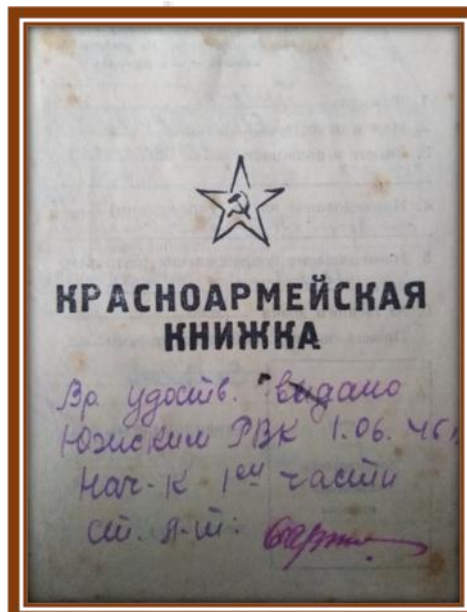 КРАСНОАРМЕЙСКАЯ
КНИЖКА
Вр. удоств. выдано
Южским РВК 1.06.46 г.
Нач-к 1ой части
ст. л-т: